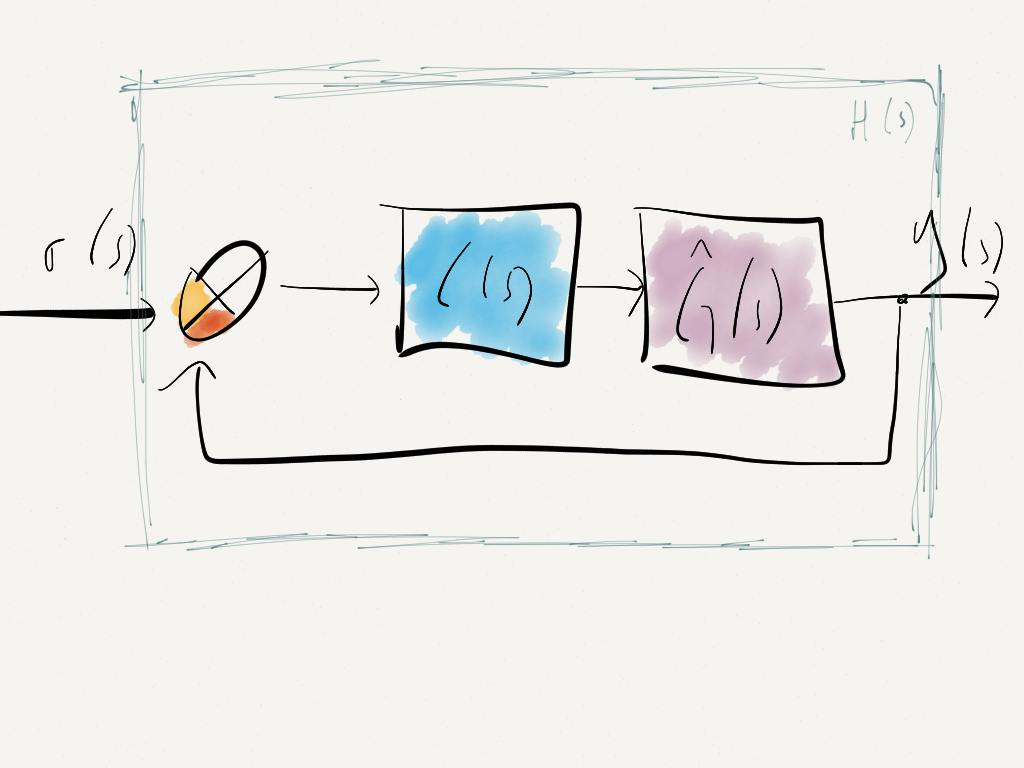 H(s)
r(s)
C(s)
Ĝ(s)
y(s)